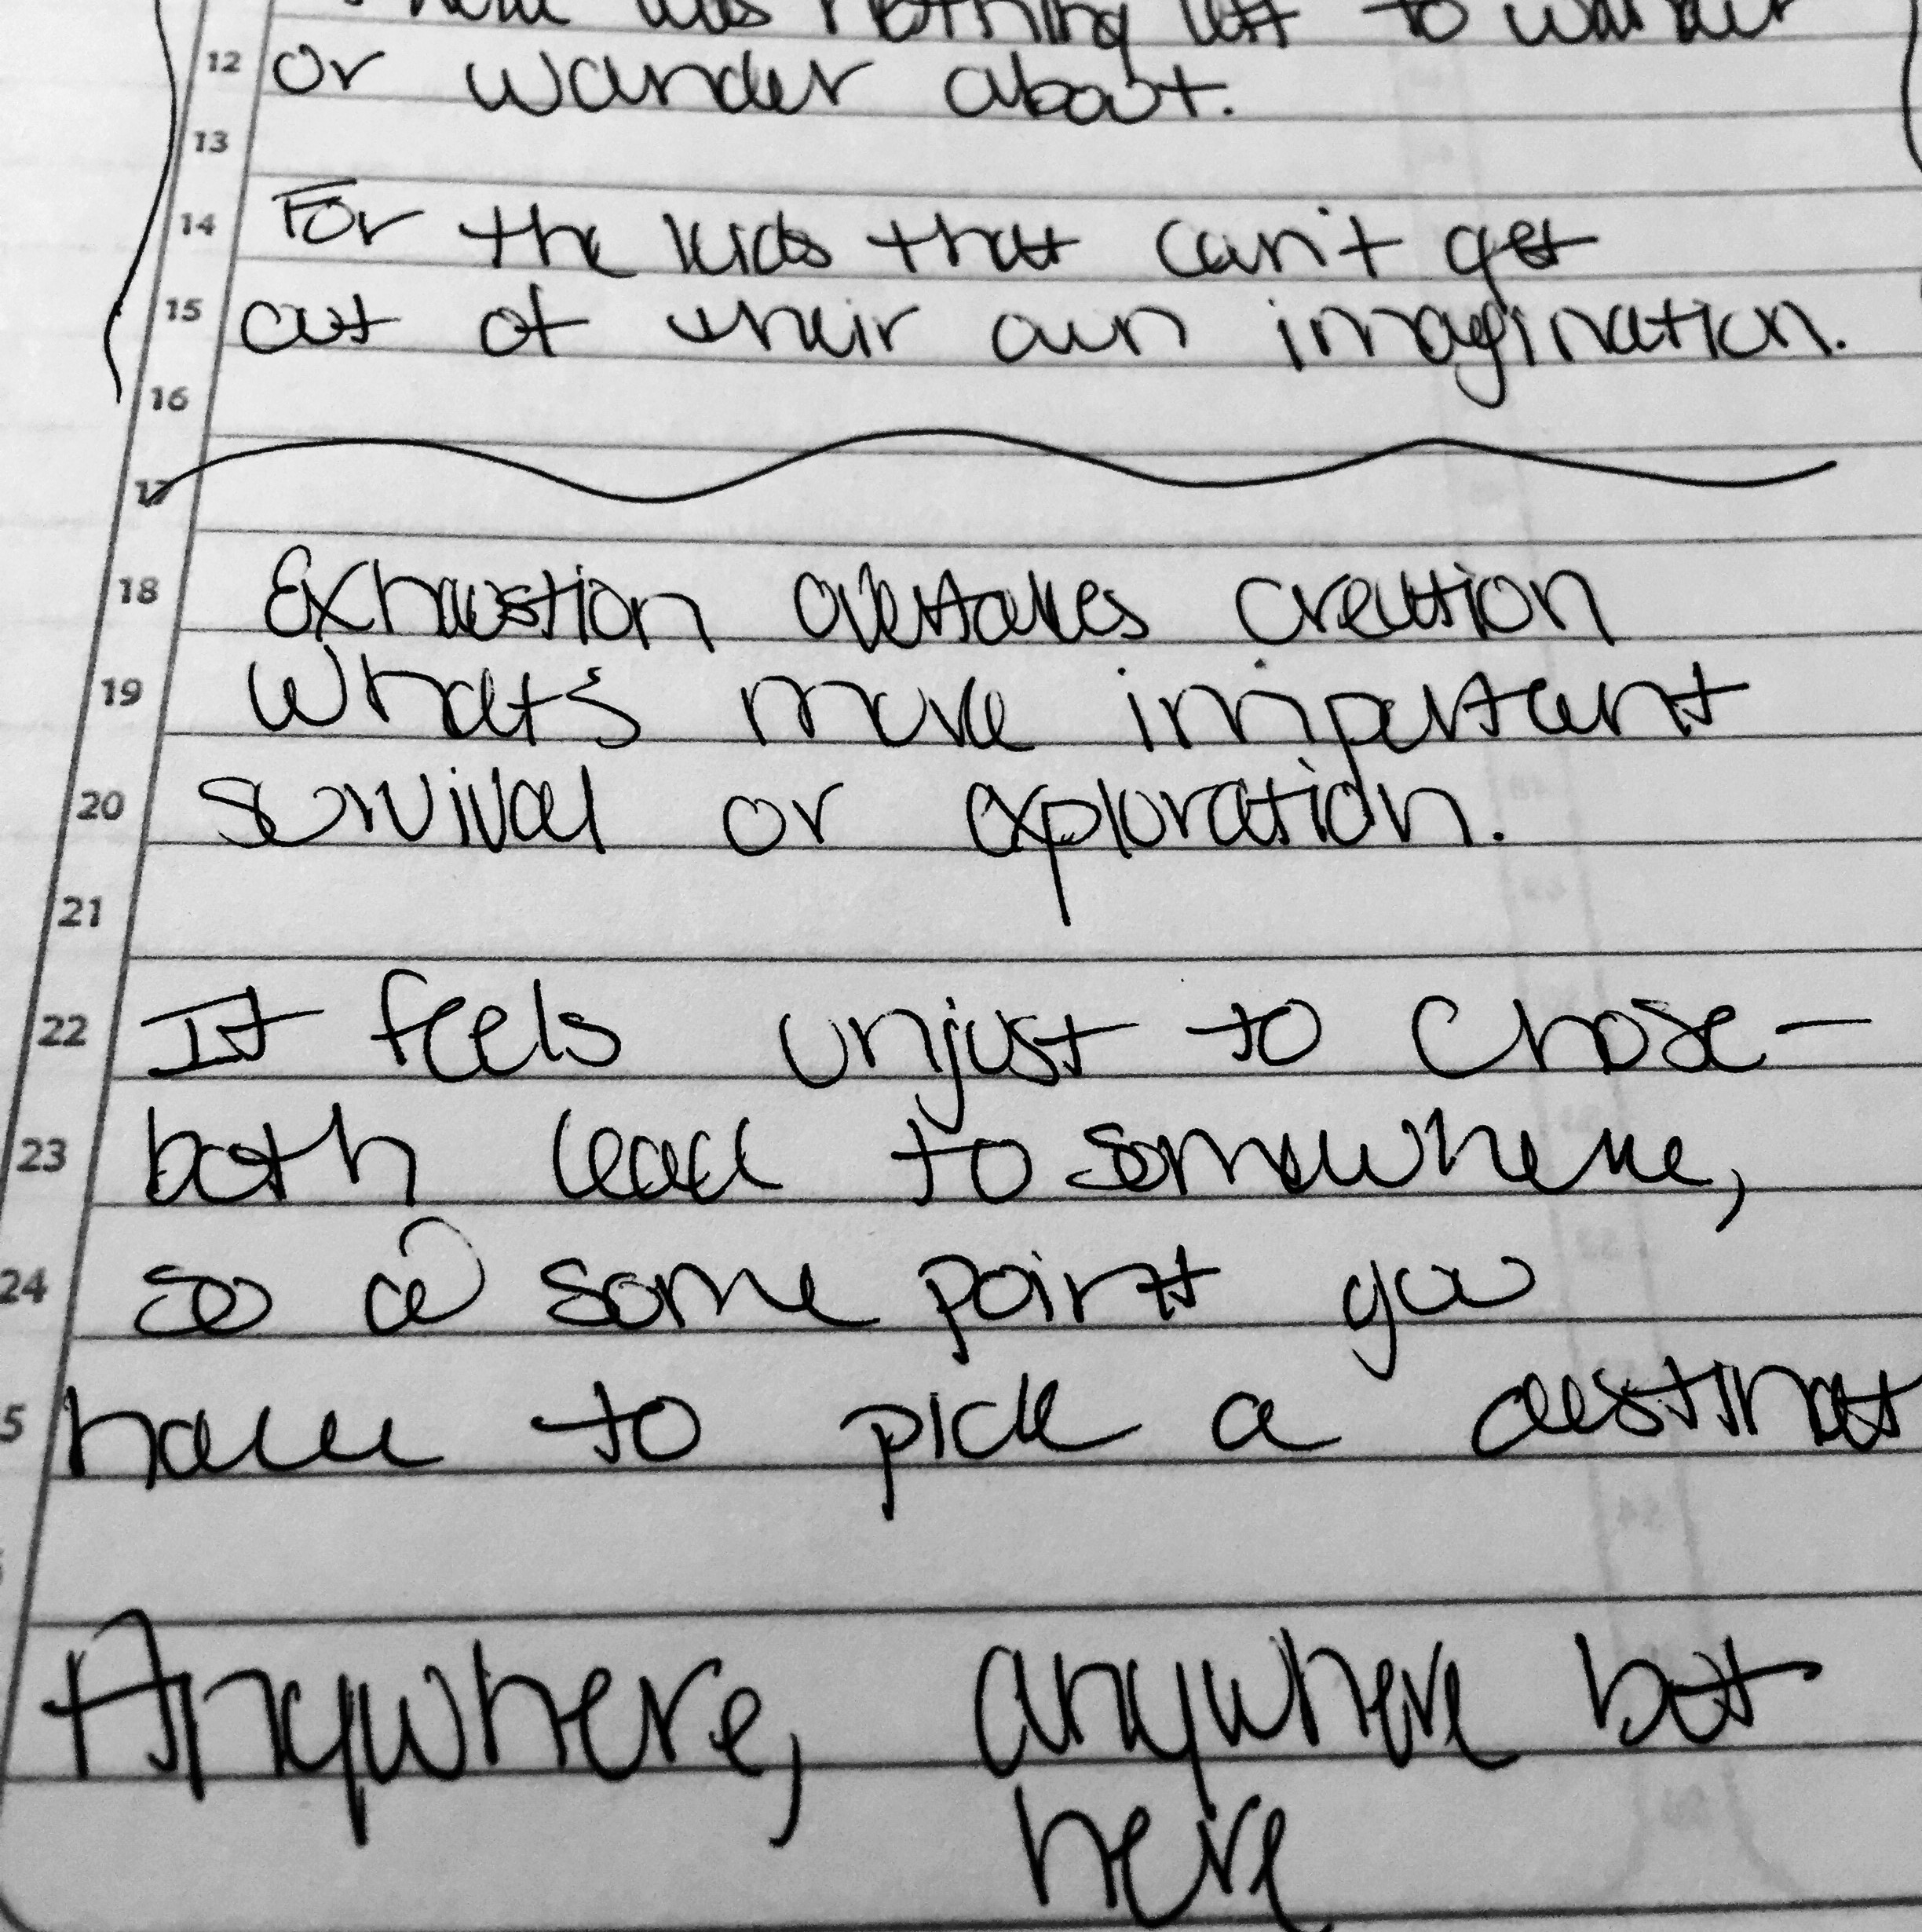 was nothing left to
12 or wander about.
13
14 For the kids that can't get
15 out of their own imagination.
16
17
18 Exhaustion overtakes creation
19 What's more important
20 survival or exploration.
21
22 It feels unjust to chose—
23 both lead to somewhere,
24 so @ some point you
5 have to pick a destinat
Anywhere, anywhere but
here